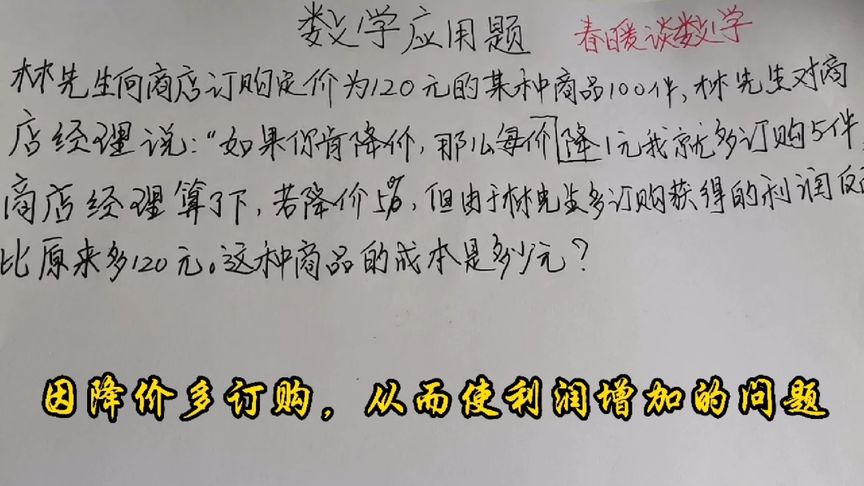 数学应用题 春暖谈数学
林先生向商店订购定价为120元的某种商品100件,林先生对商
店经理说:“如果你肯降价,那么每价降1元我就多订购5件,
商店经理算了下,若降价5%,但由于林先生多订购获得的利润反
比原来多120元。这种商品的成本是多少元?
因降价多订购,从而使利润增加的问题